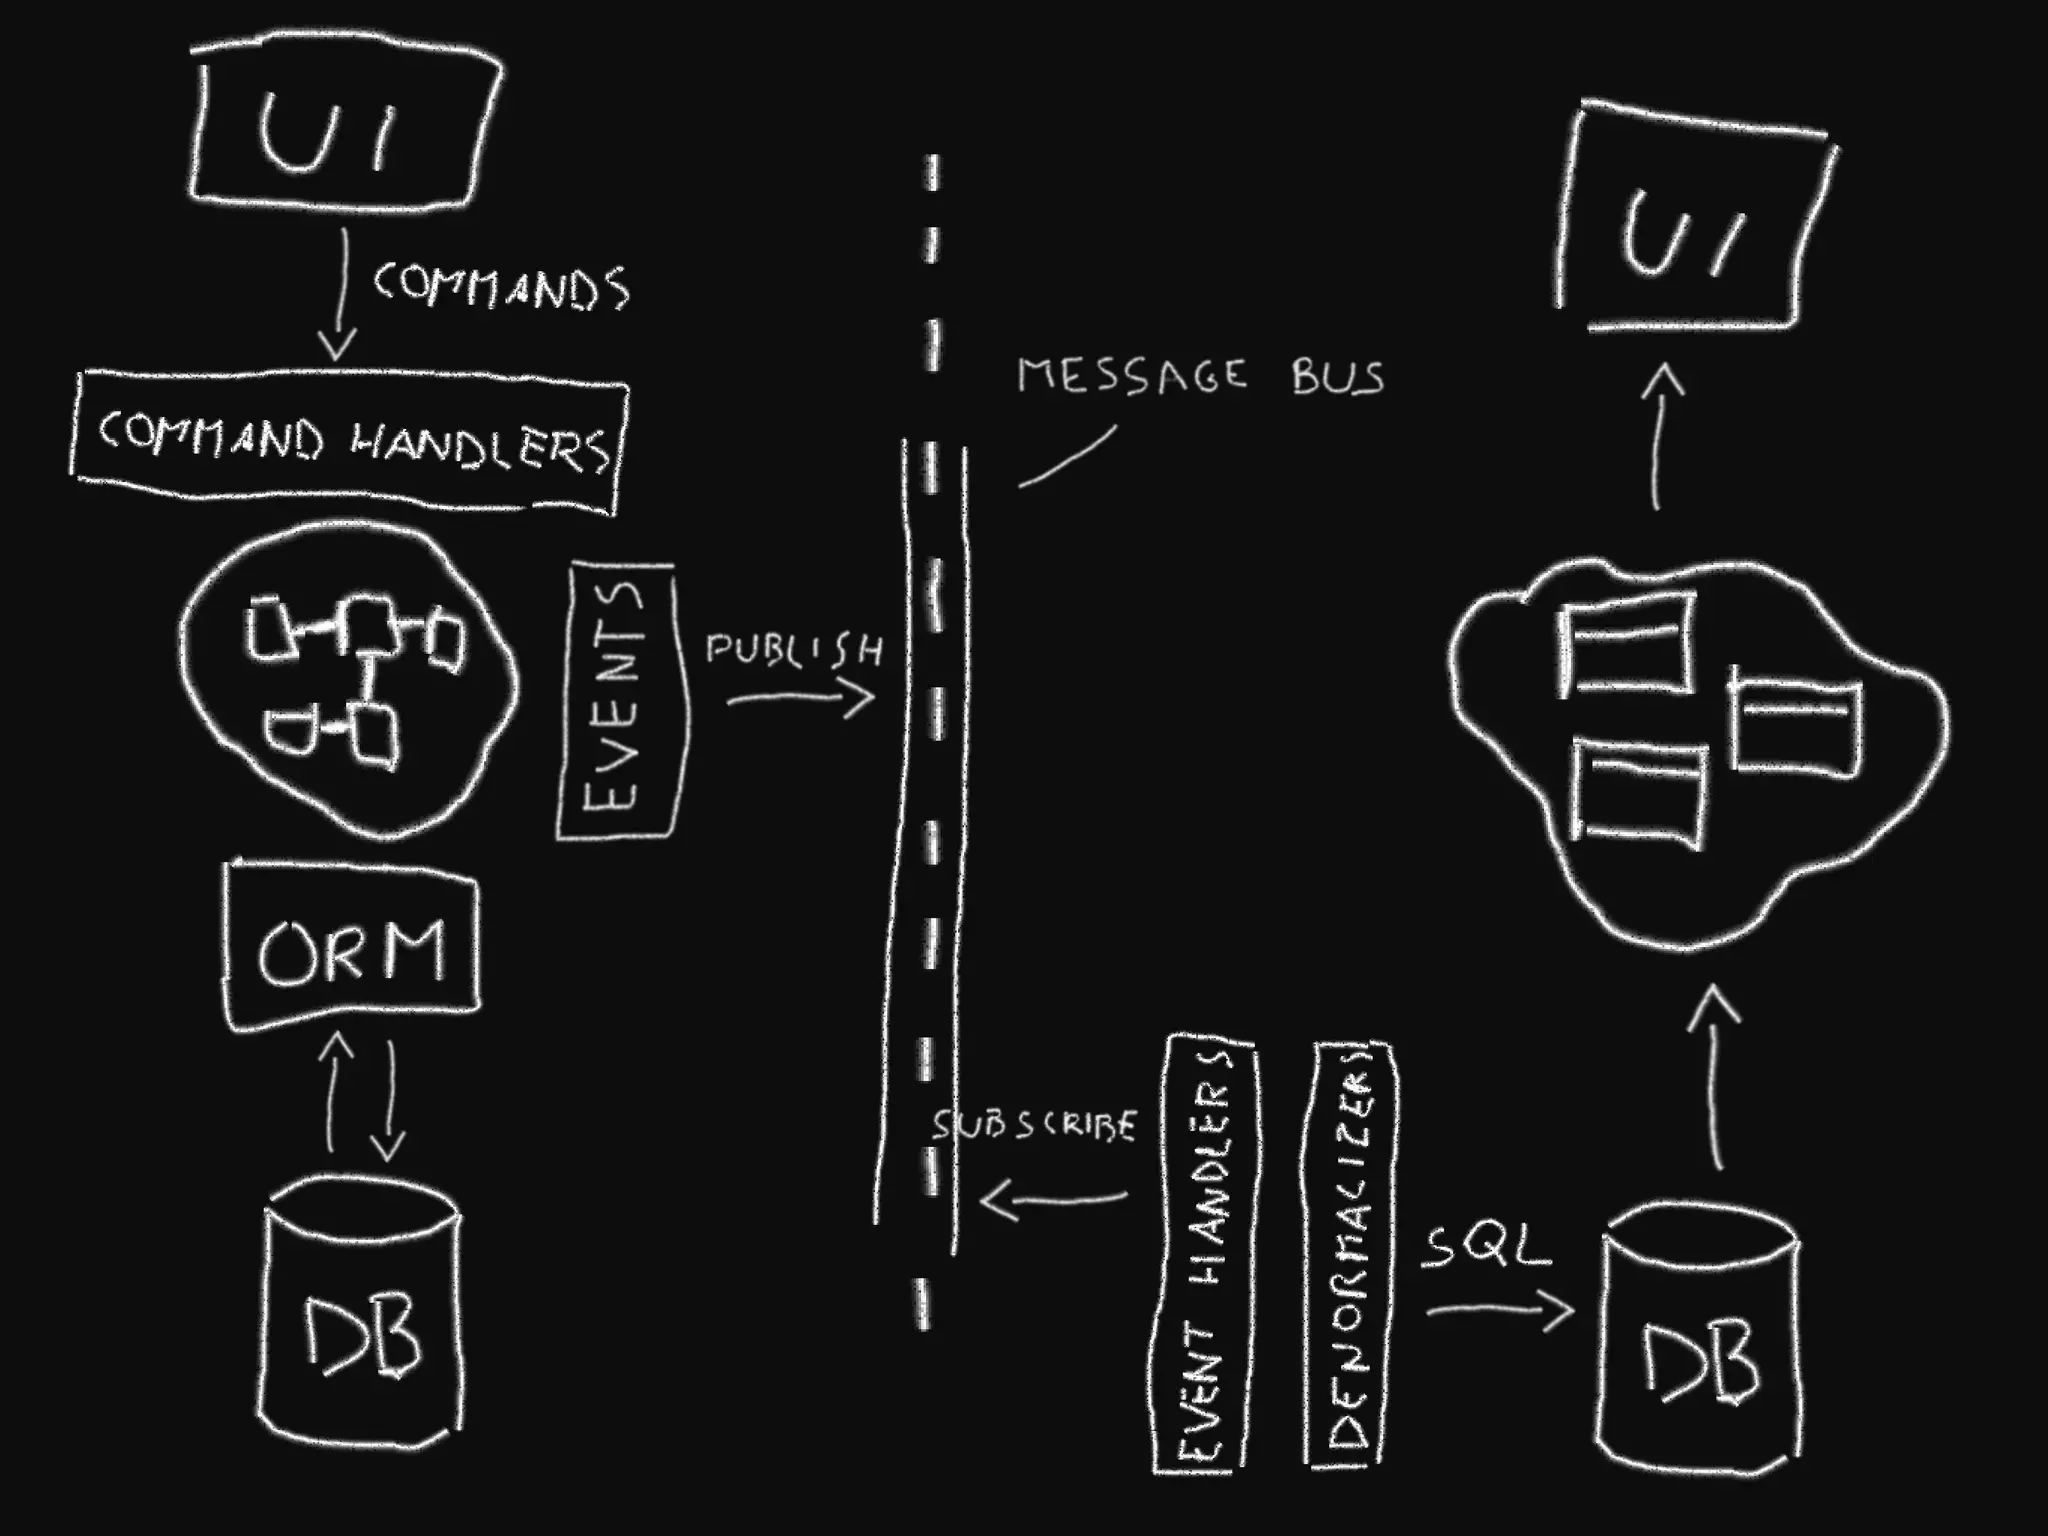 UI
COMMANDS
COMMAND HANDLERS
EVENTS
PUBLISH
ORM
DB
MESSAGE BUS
SUBSCRIBE
EVENT HANDLERS
DENORMALIZERS
SQL
UI
DB